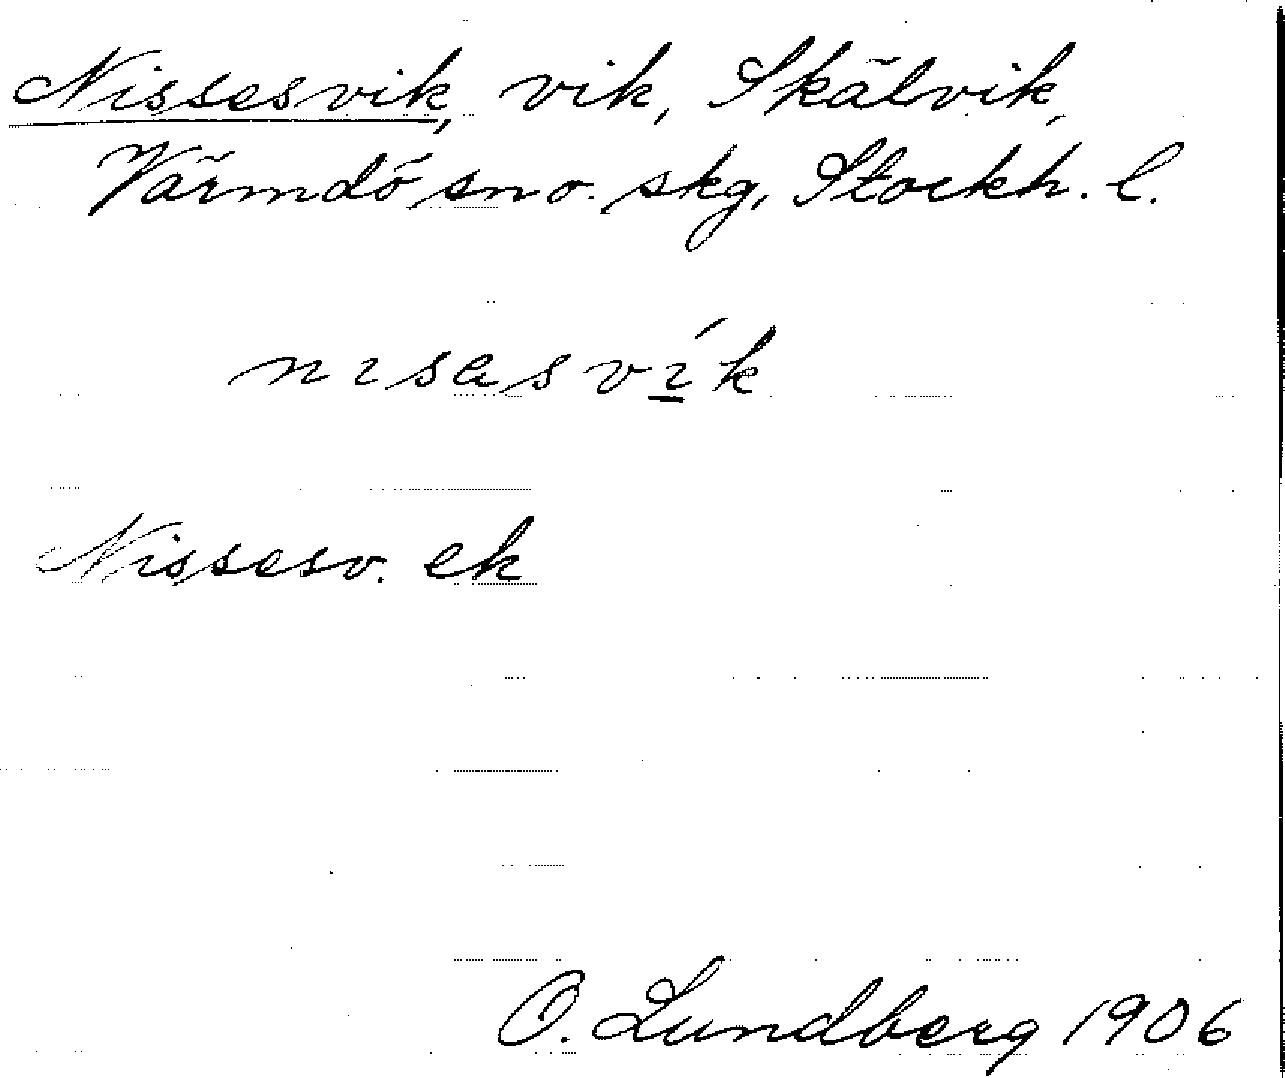 Nissesvik, vik, Skälvik,
Värmdö sno. skg, Stockh. l.
nısɑsvı́k
Nissesv. ek
O. Lundberg 1906